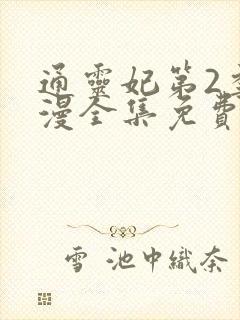 通靈妃第2
漫全集免費
雪 池中織奈